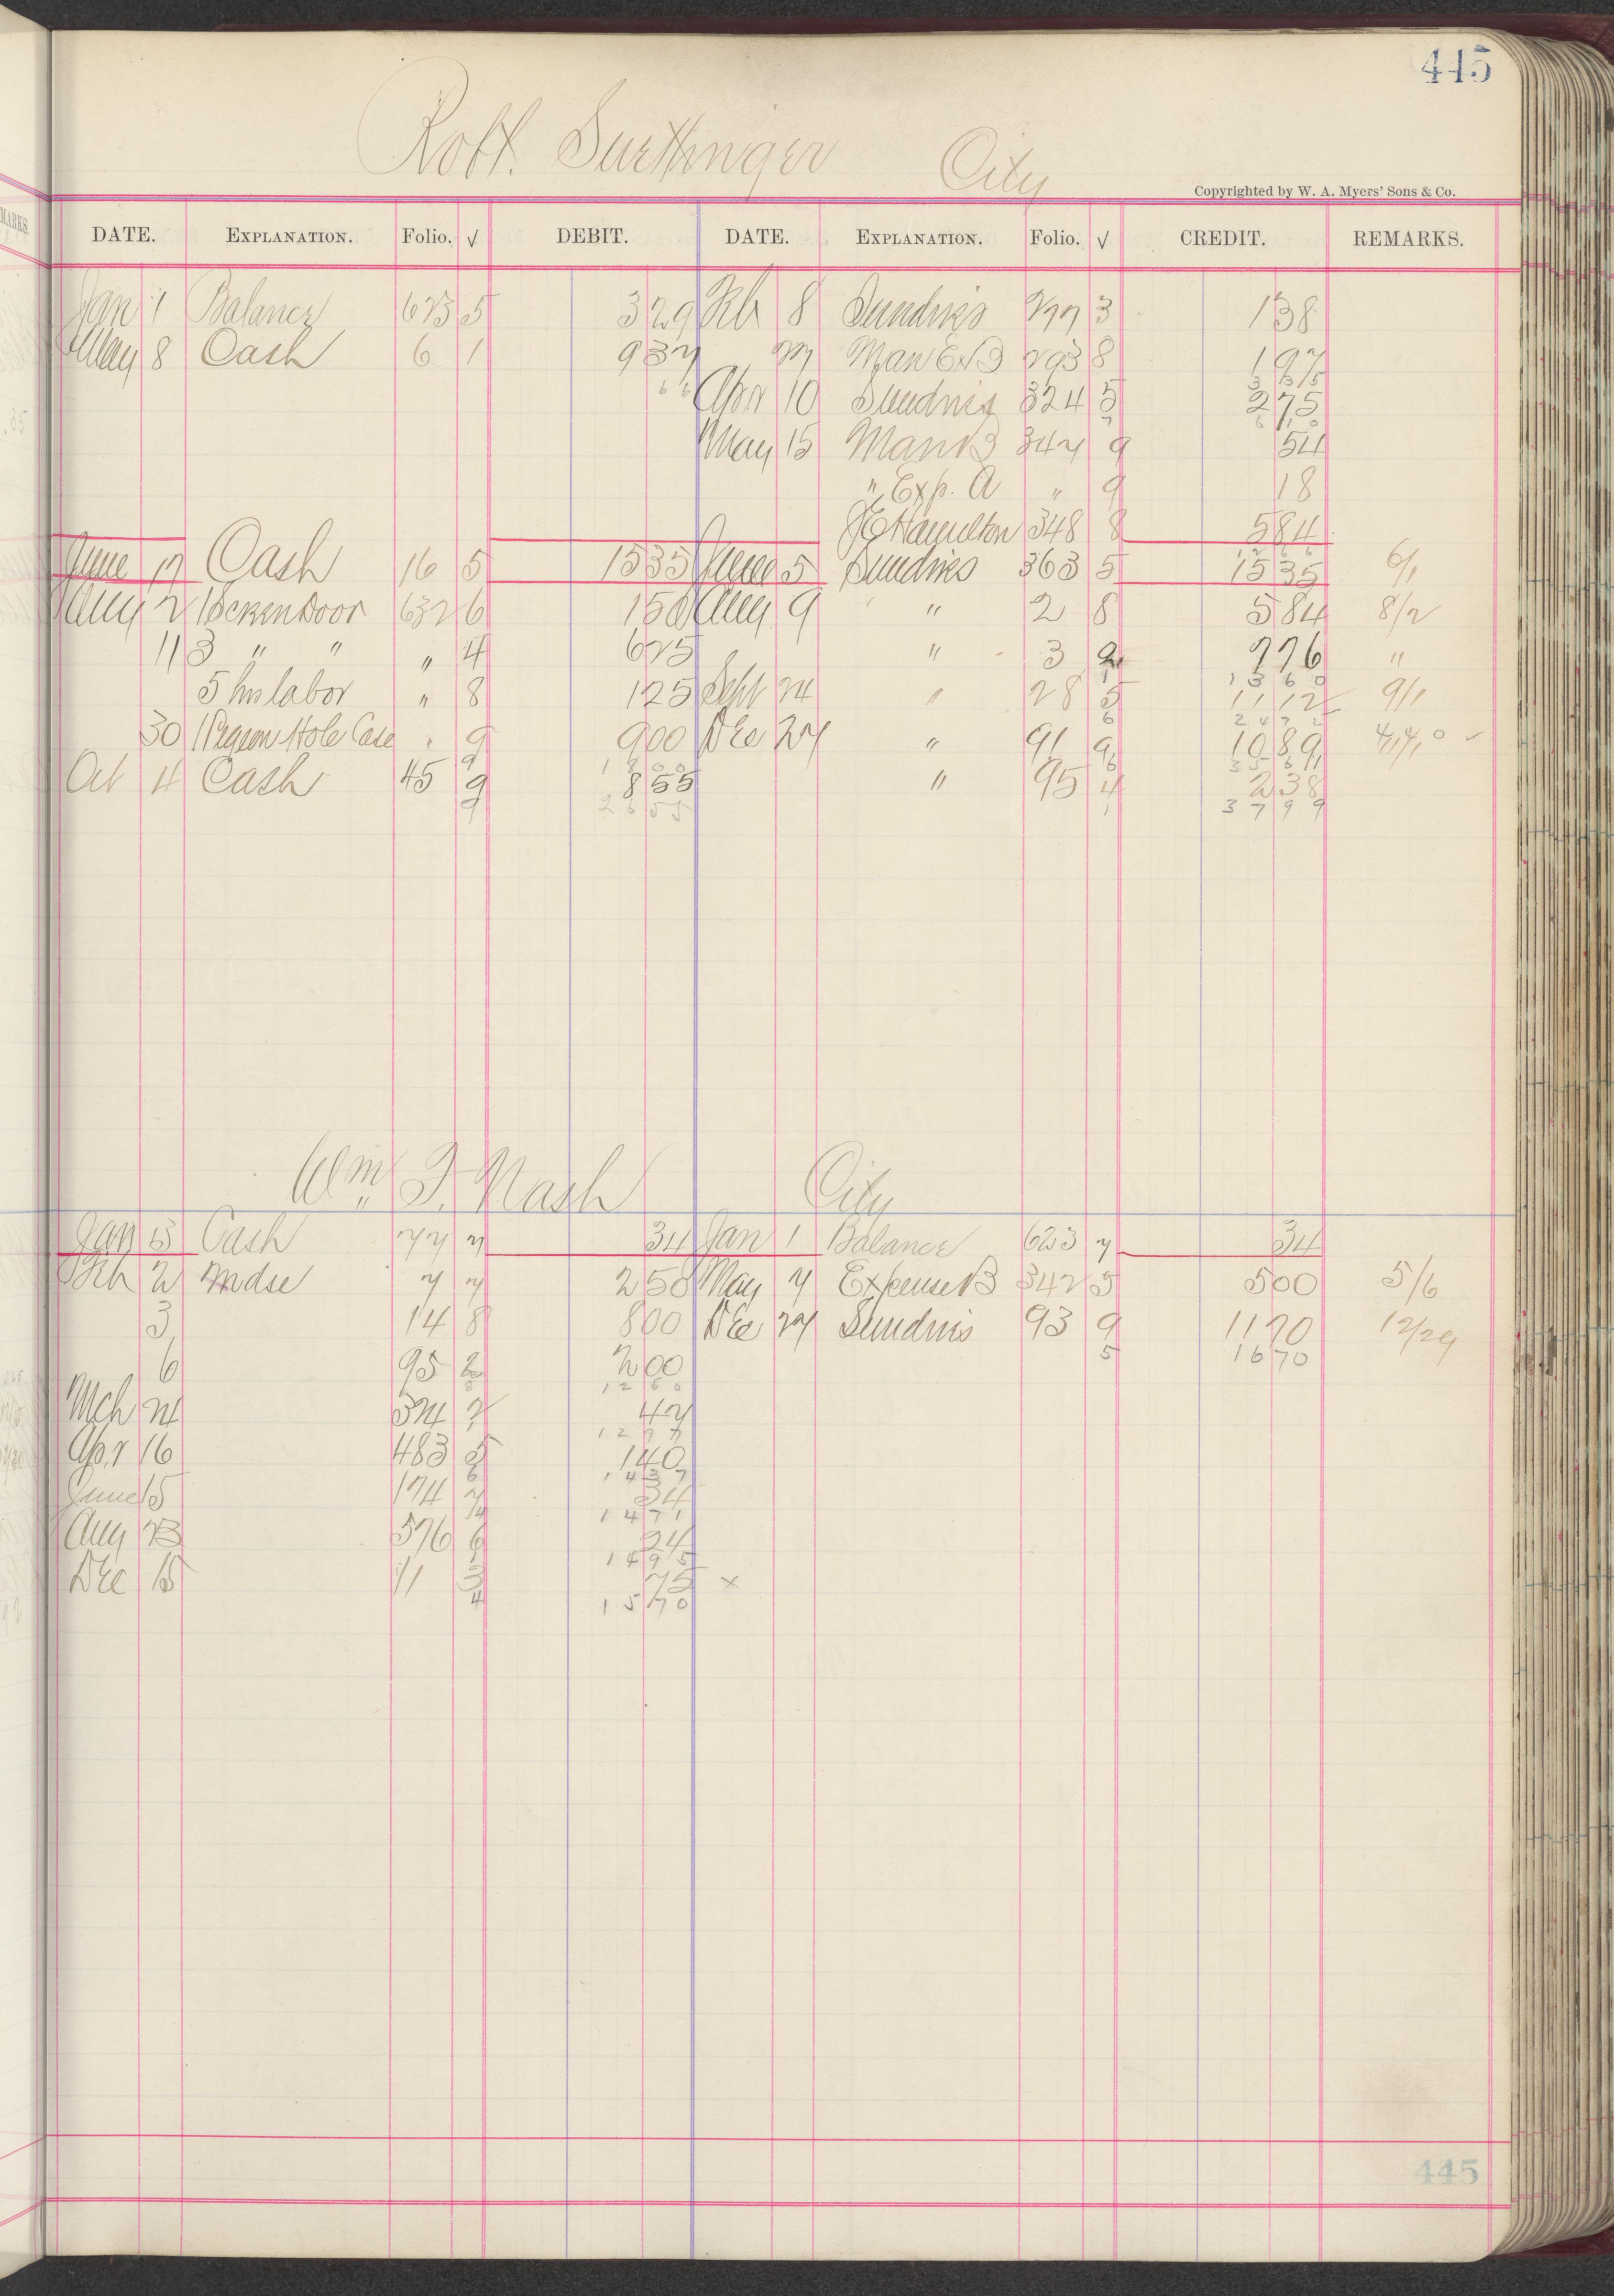 445
Robt. Surthinger City
Copyrighted by W. A. Myers' Sons & Co.
DATE. EXPLANATION. Folio. √ DEBIT. DATE. EXPLANATION. Folio. √ CREDIT. REMARKS.
Jan 1 Balance 673 5 329 Feb 8 Sundries 277 3 138
May 8 Cash 6 1 937 27 Man Ex B 293 8 197
Apr 10 Sundries 324 5 275
May 15 Man B 347 9 54
" Exp. A " 9 18
Hamilton 348 8 584
June 17 Cash 16 5 1535 June 5 Sundries 363 5 1535 6/1
Aug 2 1 Screen Door 632 6 150 Aug 9 " 2 8 584 8/2
11 3 " " " 4 675 " 3 2 776 "
5 hrs labor " 8 125 Sept 24 " 28 5 1112 9/1
30 1 Pigeon Hole Case " 9 900 Dec 27 " 91 9 1089
Oct 4 Cash 45 9 855 " 95 4 238
2655 3799
Wm. F. Nash City
Jan 15 Cash 77 7 34 Jan 1 Balance 623 7 34
Feb 2 Mdse 7 7 258 May 7 Expense B 342 5 500 5/6
3 14 8 800 Dec 27 Sundries 93 9 1170 12/29
5 1670
6 95 2 200
Mch 24 47
Apr 16 483 140
June 15 174 34
1471
Aug 23 576 6 24
1495
Dec 15 11 3 75 x
4 1570
445